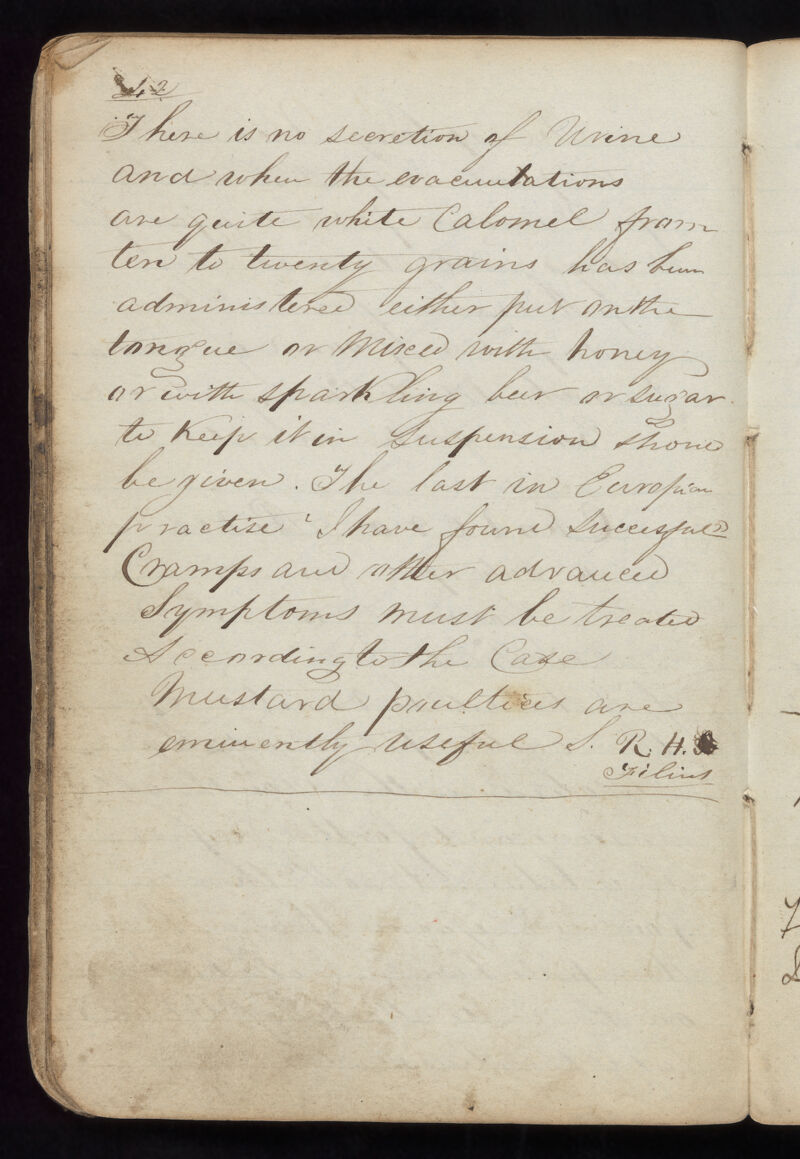 42
There is no secretion of Urine
and when the evacuutations
are quite white Calomel from
ten to twenty grains has been
administered either put on the
tongue or Mixed with honey
or with sparkling beer or sugar
to Keep it in Suspension should
be given. The last in European
practise I have found Successful
Cramps and other advanced
Symptoms must be treated
According to the Case
Mustard poultices are
eminently useful S. R. H.
Filius